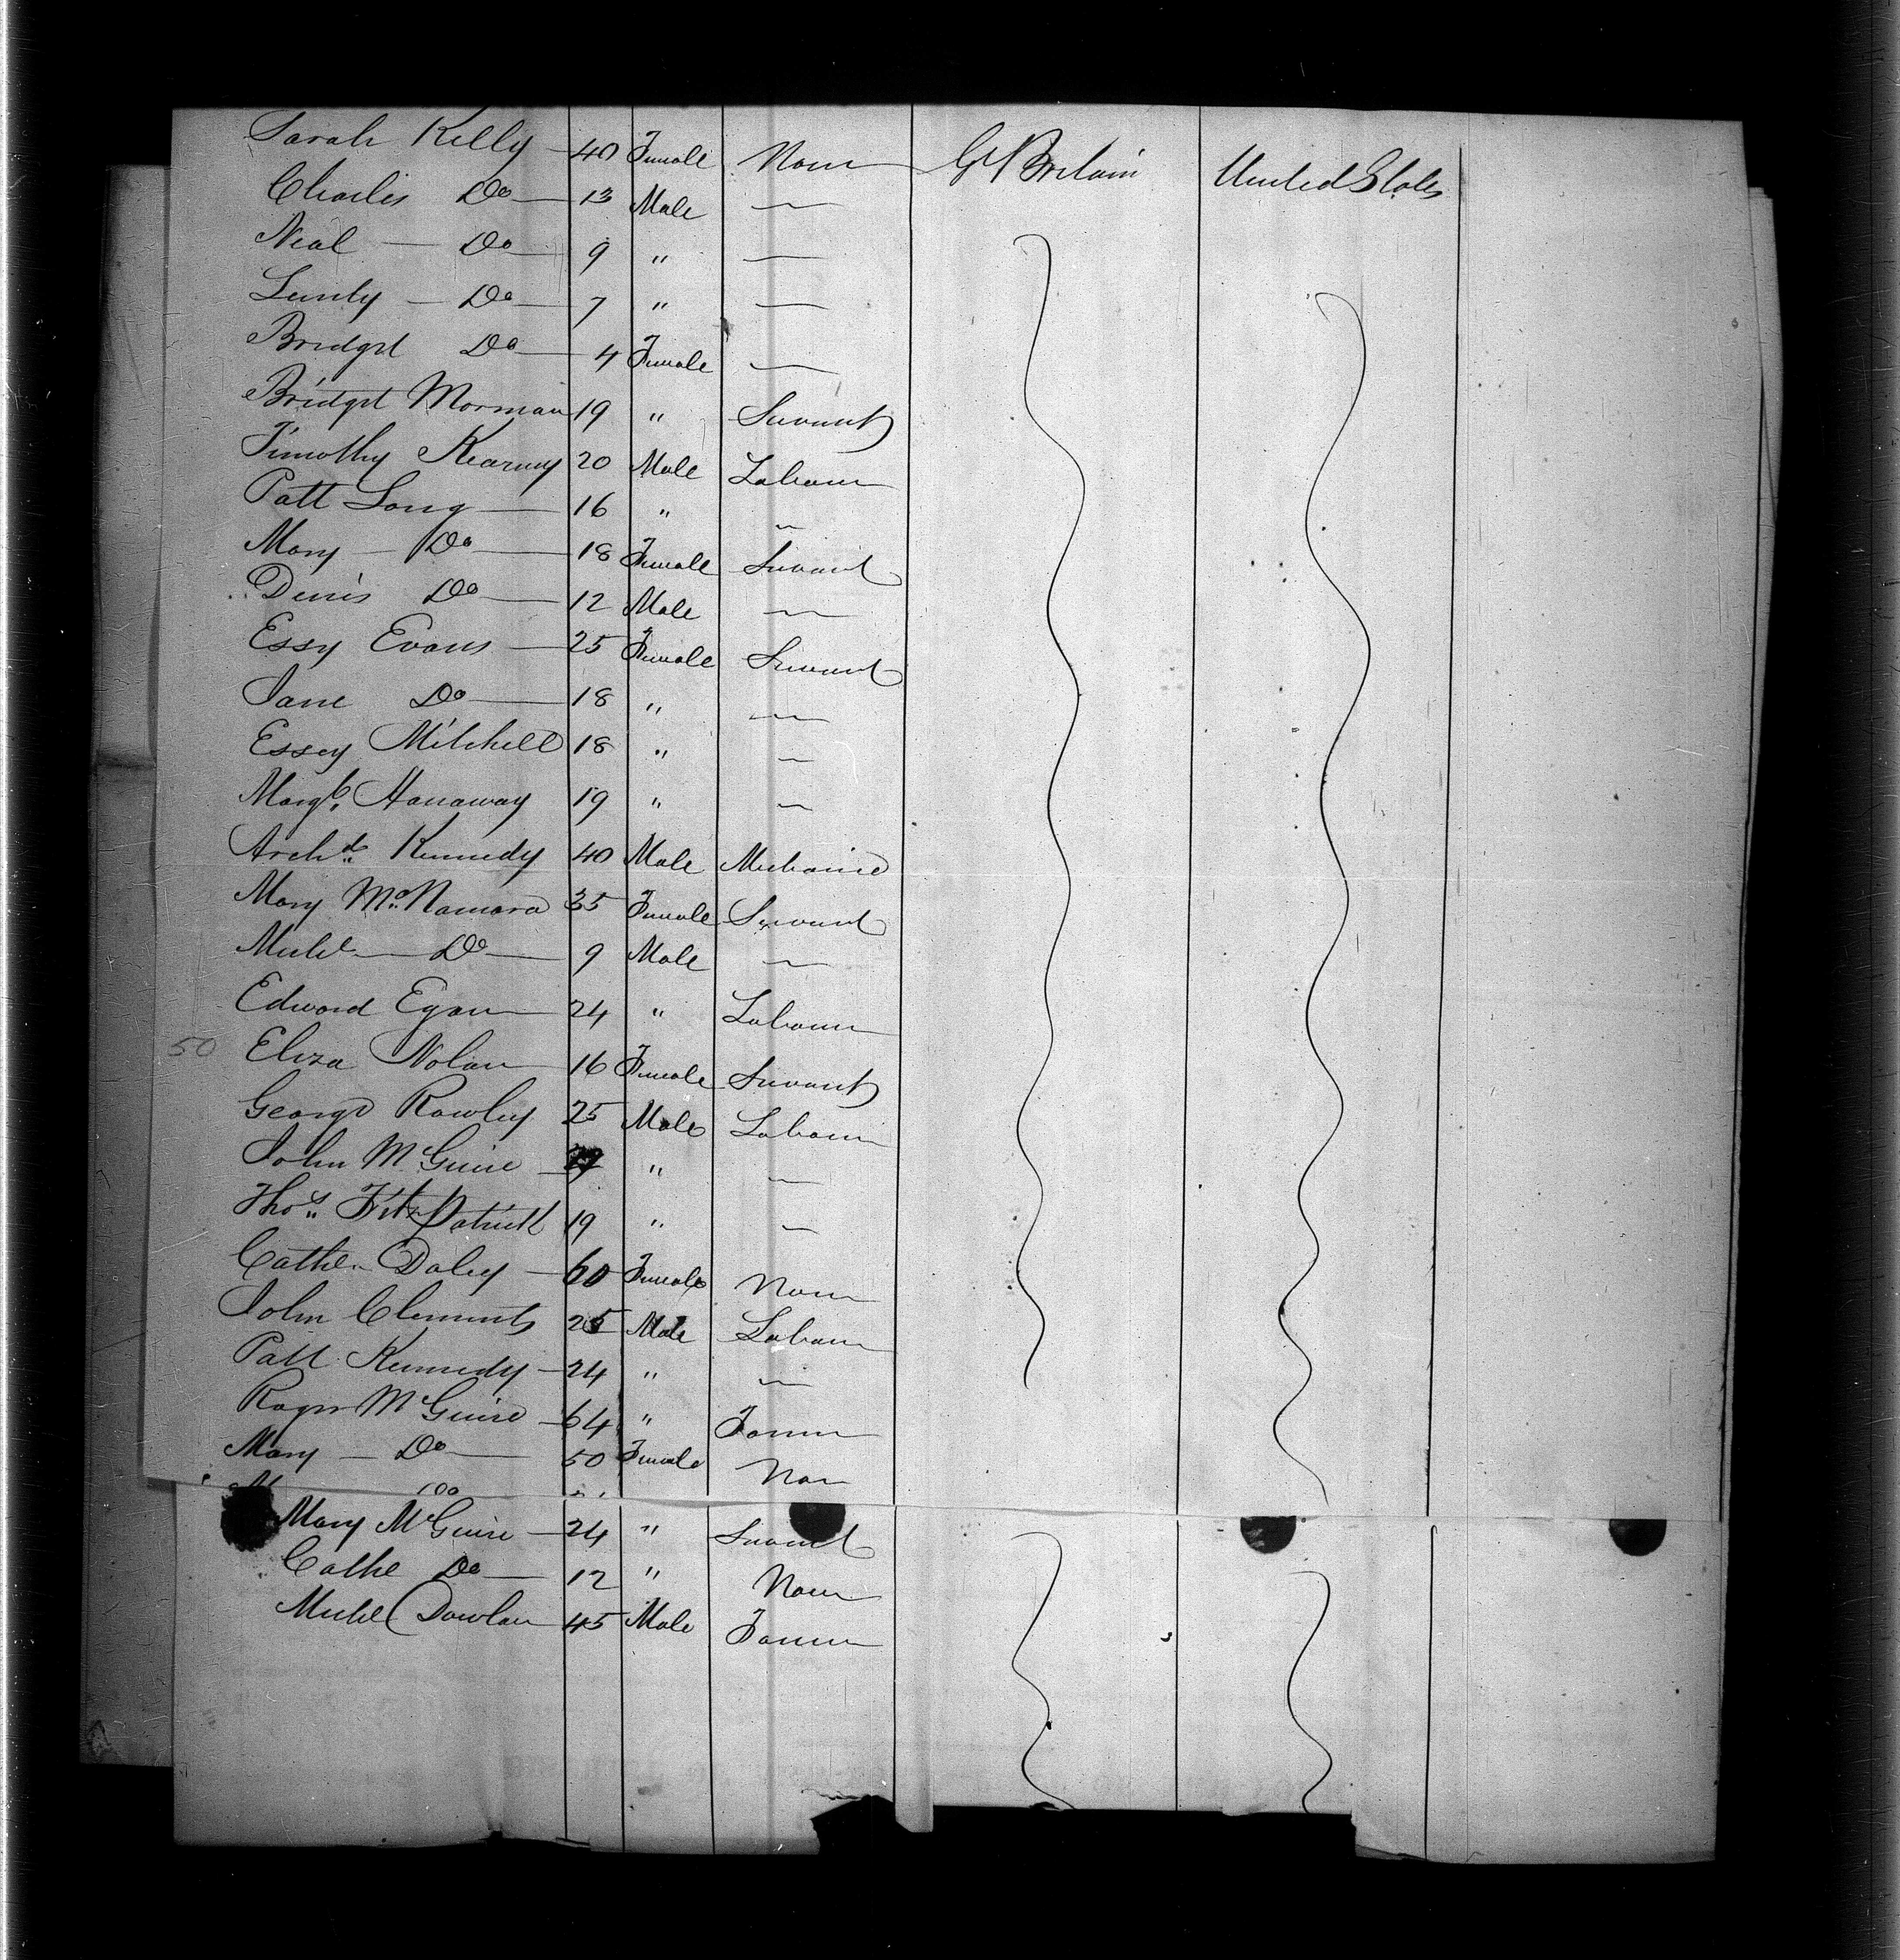 Sarah Kelly — 40 Female None Gt Britain United States
Charles Do — 13 Male —
Neal — Do — 9 " —
Do — 7 " —
Bridget Do — 4 Female —
Bridget Morman 19 " Servant
Timothy Kearney 20 Male Labourer
Patt Long — 16 " —
Mary — Do — 18 Female Servant
Denis Do — 12 Male —
Essy Evans — 25 Female Servant
Jane Do — 18 " —
Essey Mitchell 18 " —
Margt. Hanaway 19 " —
Archd. Kennedy 40 Male Mechanic
Mary McNamara 35 Female Servant
Michl — Do — 9 Male —
Edward Egan — 24 " Labourer
50 Eliza Nolan — 16 Female Servant
George Rowley 25 Male Labourer
John McGuire — " —
Thos. FitzPatrick 19 " —
Cathe. Daley — 60 Female None
John Clements 25 Male Labourer
Patt Kennedy — 24 " —
Roger McGuire — 64 " Farmer
Mary — Do — 50 Female Non
Do
Mary McGuire — 24 " Servant
Cathe Do — 12 " None
Michl Dowlan 45 Male Farmer